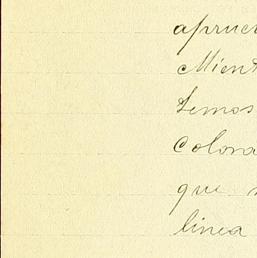 apruel
Mient
temos
Colora
que
linea